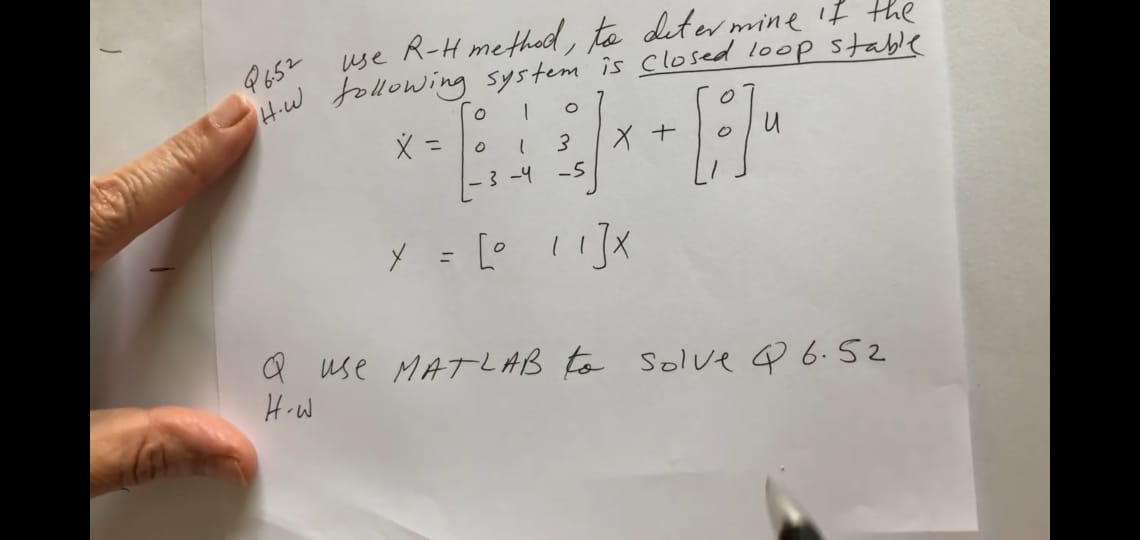 Q 6.52 use R-H method, to determine if the
H.W following system is closed loop stable
Ẋ = [0 1 0
0 1 3
-3 -4 -5] X + [0
0
1] u
y = [0 1 1] X
Q use MATLAB to solve Q 6.52
H.W